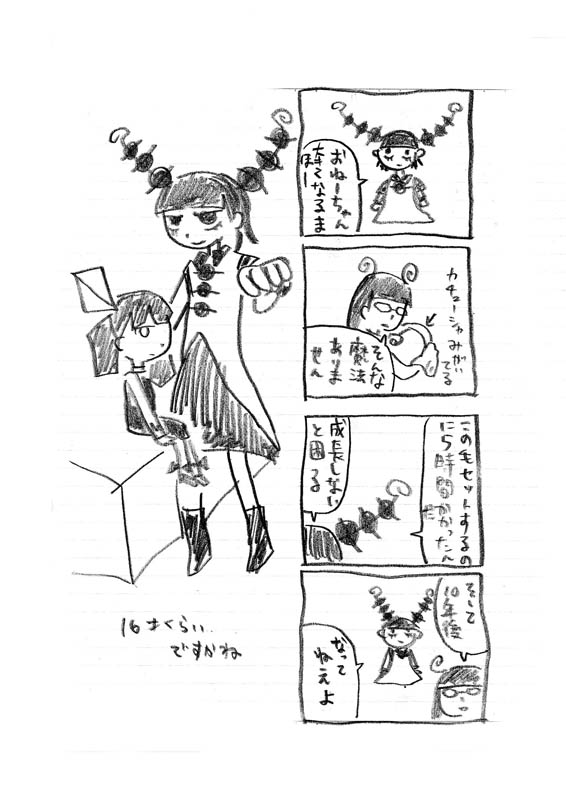 おねーちゃん
幸でなるま
ほー
カチューシャみがい
てる
そんな
魔法
ありま
せん
この毛セットするの
に5時間かかったん
だ
成長しない
と困る
そして
10年後
なって
ねえよ
16才くらい
ですかね